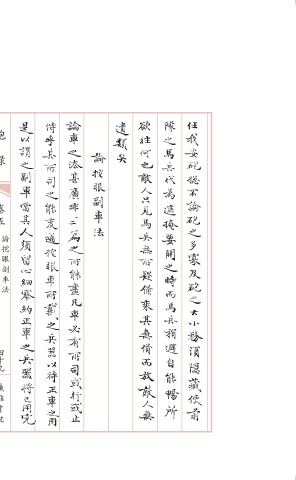 任我安砲總不論砲之多寡及砲之大小務須隱藏使前
隊之馬兵代為遮掩要開之時而馬兵稍避自能暢所
欲往何也敵人只見馬兵無所疑備乘其無備而放敵人無
遺類矣
論挖眼副車法
論車之法甚廣非一二篇之所能盡凡車必有所司或行或止
待乎其所司之能變通挖眼車所載之兵器以待正車之用
是以謂之副車當其人須留心細察約正車之兵器將已用完
論挖眼副車法
四十九